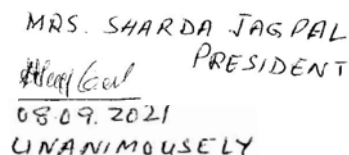 MRS. SHARDA JAGPAL
PRESIDENT
08.09.2021
UNANIMOUSELY